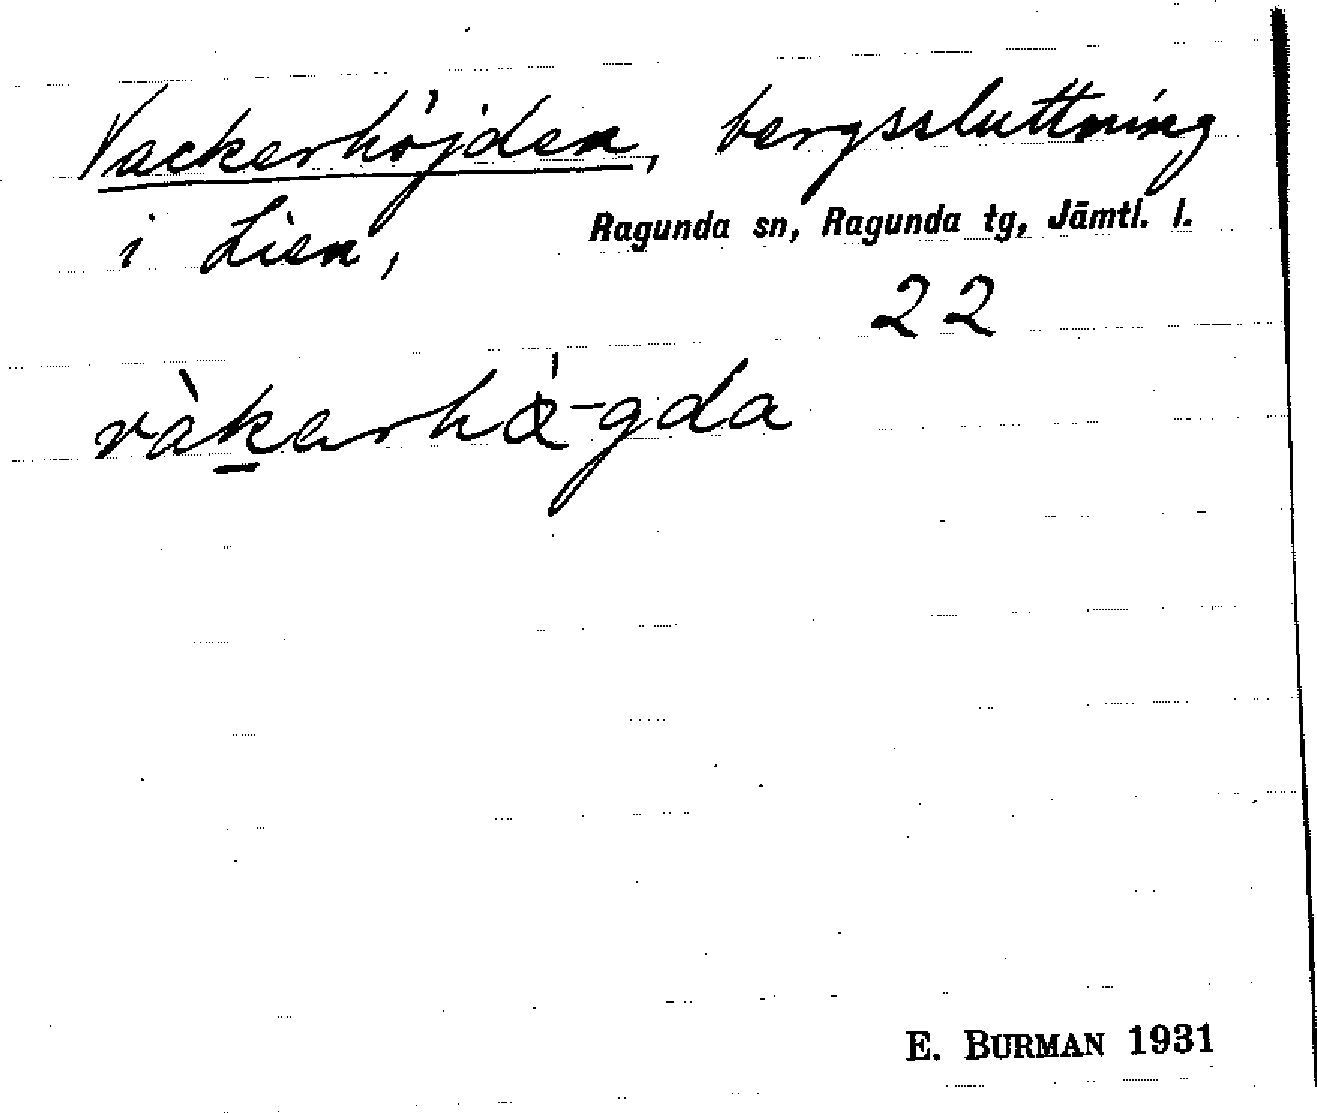 Vackerhöjden, bergssluttning
i Lien, Ragunda sn, Ragunda tg, Jämtl. l.
22
vàkerhö́-gda
E. BURMAN 1931